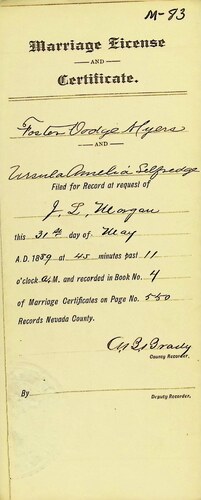 M-93
Marriage License
AND
Certificate.
Foster Dodge Myers
AND
Ursula Amelia Selfredge
Filed for Record at request of
J. L. Morgan
this 31st day of May
A.D. 1889 at 45 minutes past 11
o'clock A.M. and recorded in Book No. 4
of Marriage Certificates on Page No. 550
Records Nevada County.
Brady
County Recorder.
By
Deputy Recorder.